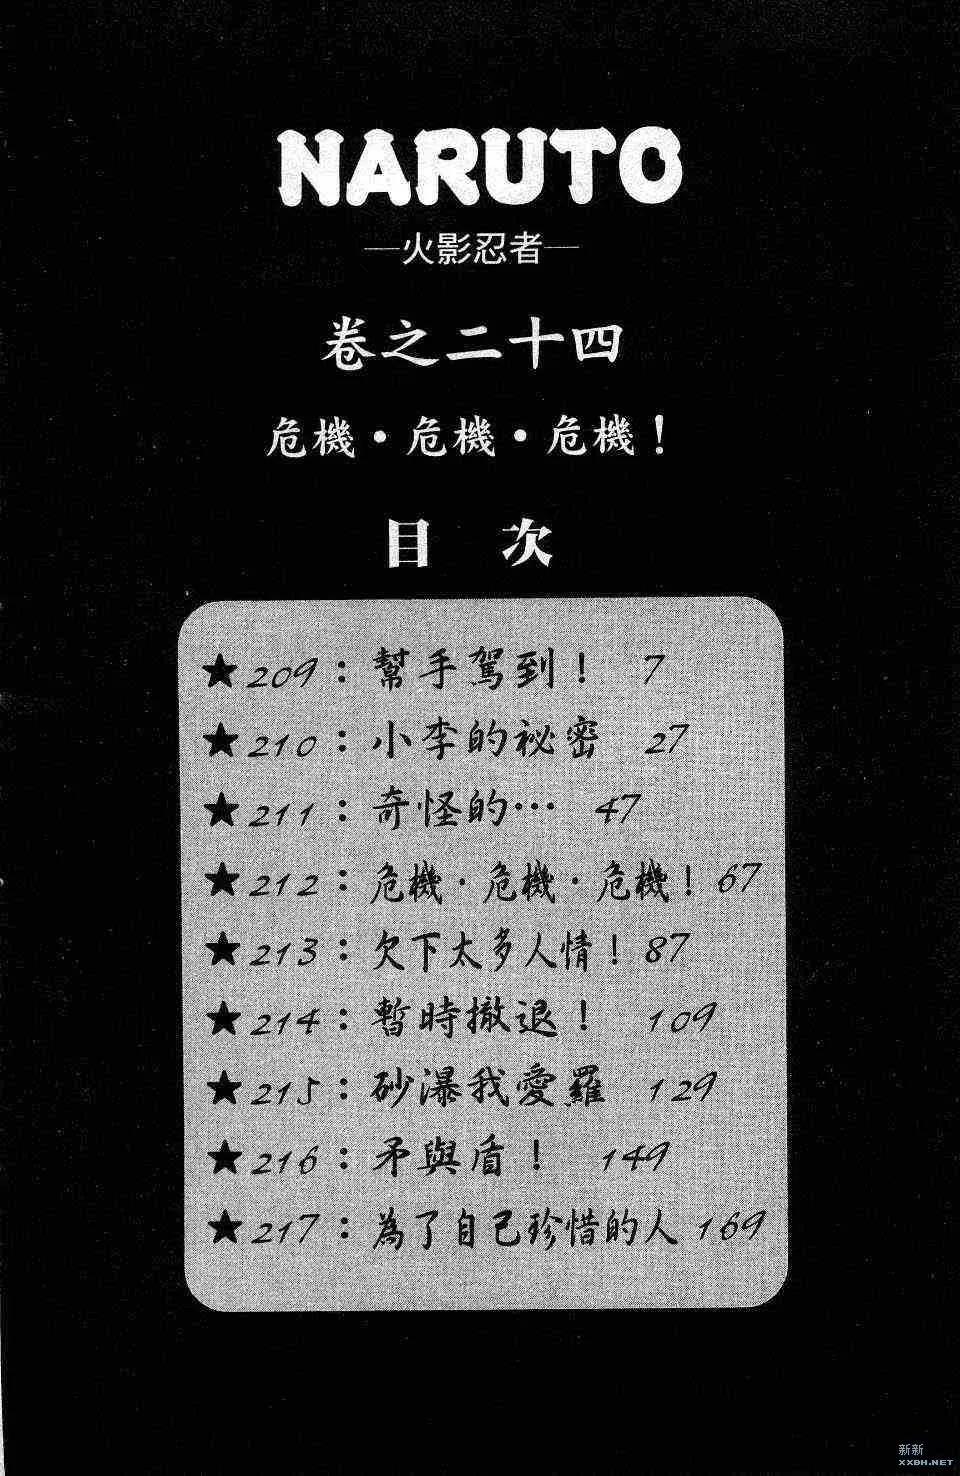 NARUTO
—火影忍者—
卷之二十四
危機・危機・危機！
目 次
★209：幫手駕到！ 7
★210：小李的祕密 27
★211：奇怪的… 47
★212：危機・危機・危機！67
★213：欠下太多人情！87
★214：暫時撤退！ 109
★215：砂瀑我愛羅 129
★216：矛與盾！ 149
★217：為了自己珍惜的人 169
新新
XXDH.NET